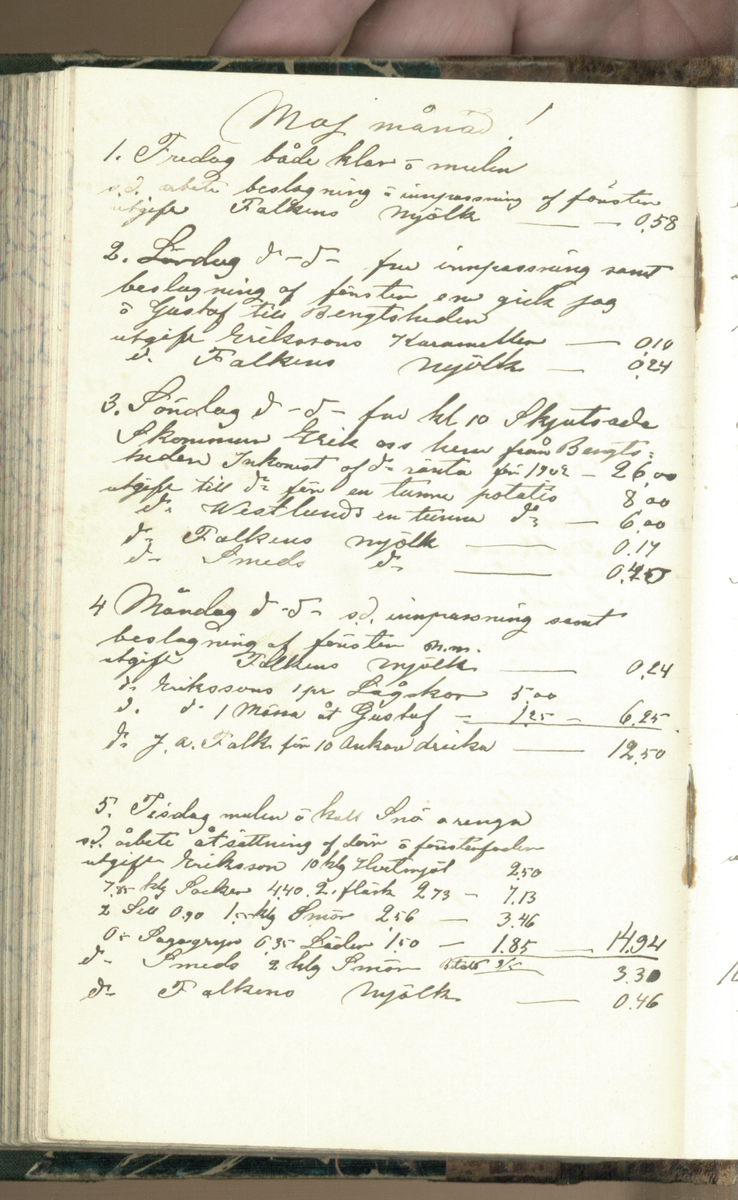 Maj månad !
1. Fredag både klar ō mulen
s.d. arbete beslagning ō innpassning af fönsten
utgift Falkens Mjölk — — 0,58
2. Lördag d⁰ - d⁰ - fm innpassning samt
beslagning af fönsten em gick jag
ō Gustaf till Bengtsheden
utgift Erikssons Karameller — 0,10
d⁰ Falkens Mjölk — 0,24
3. Söndag d⁰ - d⁰ - fm kl 10 Skjutsade
Erik oss hem från Bengts-
heden Inkomst af d⁰ ränta för 1902 — 26,00
utgift till d⁰ för en tunna potatis 8,00
d⁰ Westlunds en tunna d⁰ — 6,00
d⁰ Falkens mjölk — 0.17
d⁰ Smeds d⁰ —
4 Måndag d⁰ - d⁰ - s.d. innpassning samt
beslagning af fönsten m.m.
utgift Falkens mjölk — 0,24
d⁰ Erikssons 1 pr Lågskor 5,00
d. d⁰ 1 Mössa åt Gustaf — 1,25 — 6,25
d⁰ J. A. Falk för 10 Ankar dricka — 12,50
5. Tisdag mulen ō kall Snö
s.d. arbete åtsättning af dörr ō fönsterfoder
utgift Eriksson 10 klg Hvetmjöl 2,50
7,85 klg Socker 4,40 2, fläsk 2,73 — 7,13
2 Sill 0,90 klg Smör 2,56 — 3.46
Sagogryn 0,35 Läder 1,50 — 1.85 — 14,94
d⁰ Smeds 2 klg Smör 3.30
d⁰ Falkens Mjölk — 0,46